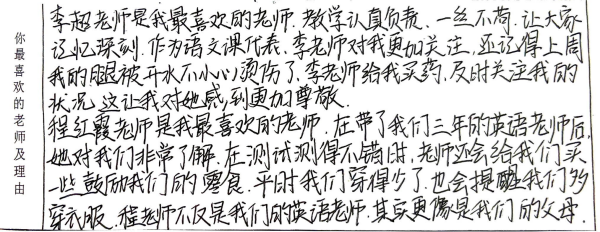 你最喜欢的老师及理由
李超老师是我最喜欢的老师，教学认真负责、一丝不苟，让大家
记忆深刻，作为语文课代表，李老师对我更加关注，还记得上周
我的腿被开水不小心烫伤了，李老师给我买药，及时关注我的
状况，这让我对他感到更加尊敬.
程红霞老师是我最喜欢的老师，在带了我们三年的英语老师后，
她对我们非常了解，在测试测得不错时，老师还会给我们买
一些鼓励我们的零食，平时我们穿得少了，也会提醒我们多
穿衣服，程老师不仅是我们的英语老师，其实更像是我们的父母.